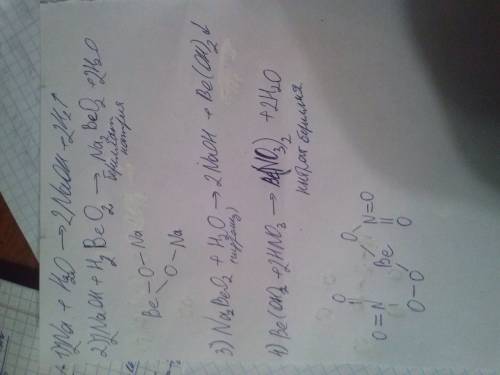 1) 2Na + H₂O → 2NaOH + 2H₂↑
2) 2NaOH + H₂BeO₂ → Na₂BeO₂ + 2H₂O
бериллат
натрия
Be
O – Na
O – Na
3) Na₂BeO₂ + H₂O → 2NaOH + Be(OH)₂↓
4) Be(OH)₂ + 2HNO₃ → Be(NO₃)₂ + 2H₂O
нитрат бериллия
O
O = N
O
O – N = O
Be
O
O – O